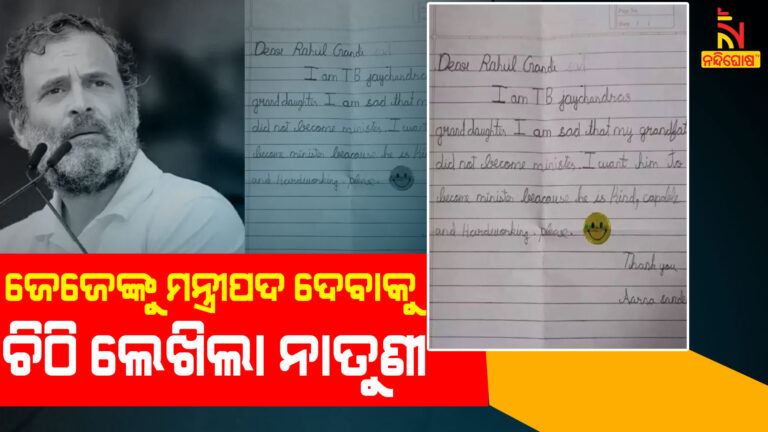 ନନ୍ଦିଘୋଷ
Dear Rahul Gandi
I am TB jaychandras
granddaughter I am sad that my
did not become minister. I want
become minister beacause he is Kind
and hardworking. please.
Dear Rahul Gandi
I am TB jaychandras
granddaughter I am sad that my grandfat
did not become minister. I want him to
become minister beacause he is Kind, capable
and hardworking. please.
Thank you
Aarna
ଜେଜେଙ୍କୁ ମନ୍ତ୍ରୀପଦ ଦେବାକୁ
ଚିଠି ଲେଖିଲା ନାତୁଣୀ